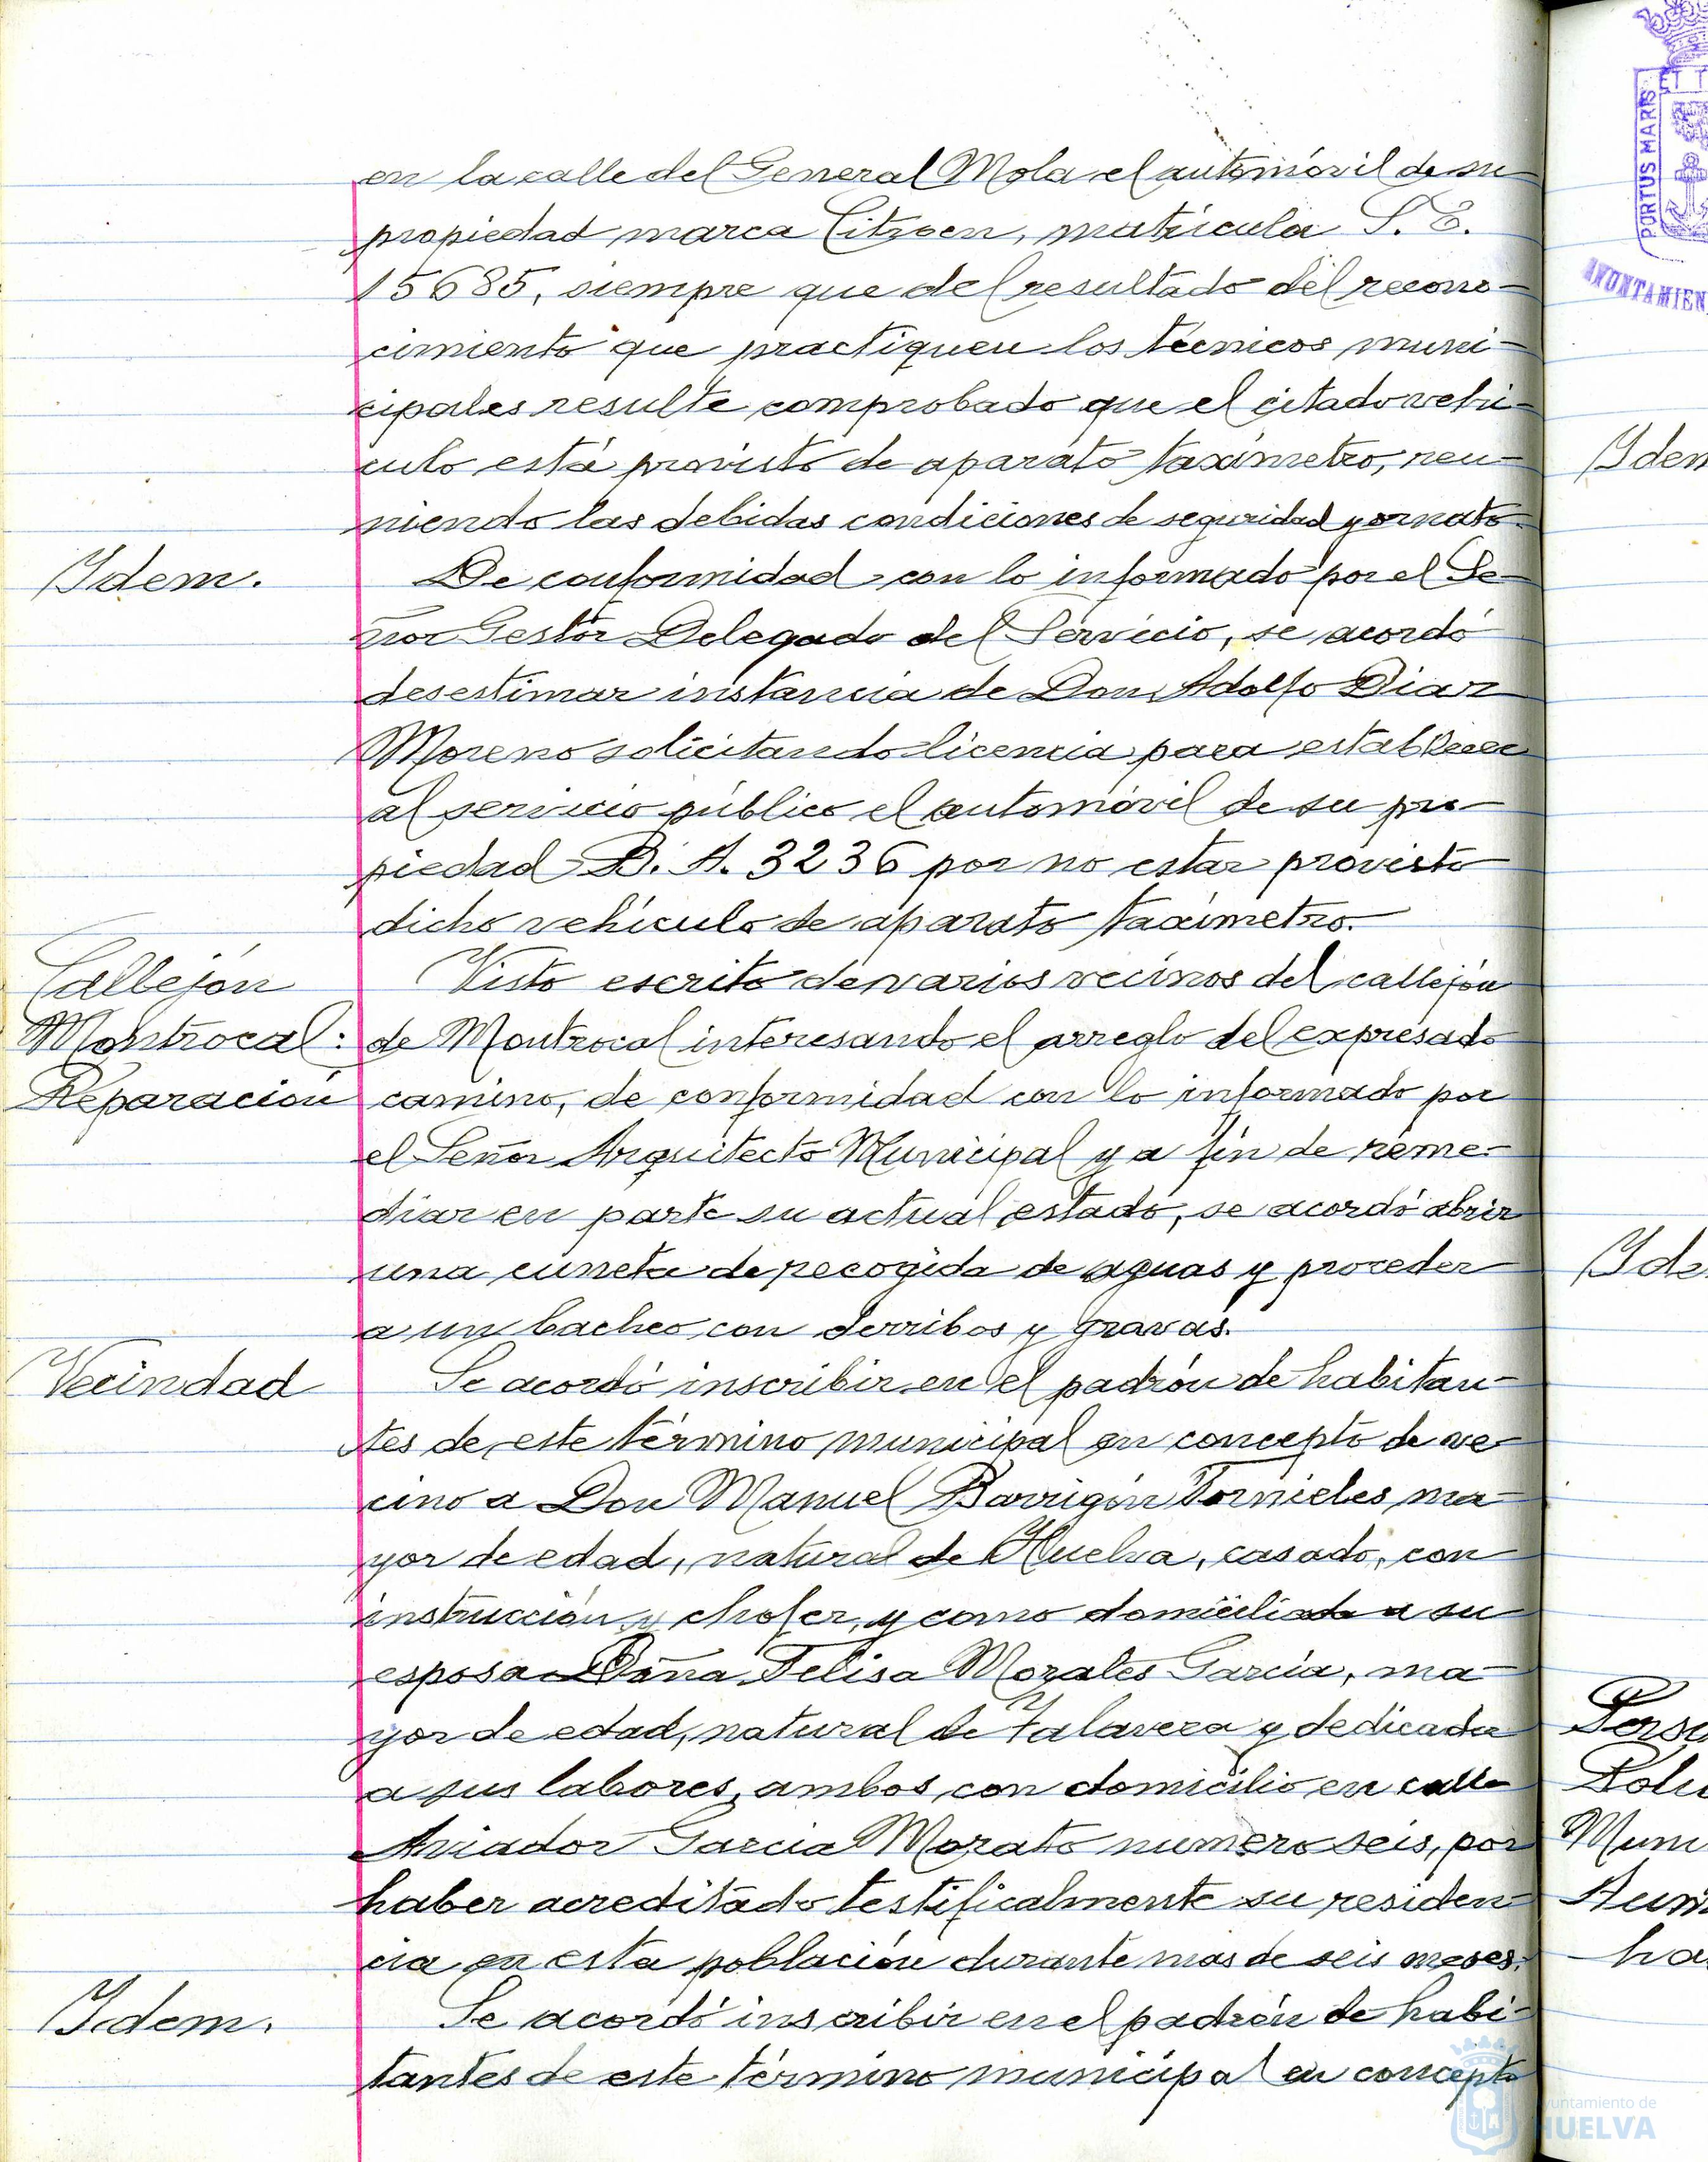 en la calle del General Mola el automóvil de su
propiedad marca Citroen, matrícula S. E.
15685, siempre que del resultado del recono-
cimiento que practiquen los técnicos muni-
cipales resulte comprobado que el citado vehi-
culo está provisto de aparato taxímetro, reu-
niendo las debidas condiciones de seguridad y ornato.
Idem.
De conformidad con lo informado por el Se-
ñor Gestor Delegado del Servicio, se acordó
desestimar instancia de Don Adolfo Diaz
Moreno solicitando licencia para establecer
al servicio público el automóvil de su pro-
piedad B. A. 3236 por no estar provisto
dicho vehículo de aparato taxímetro.
Callejón
Montrocal:
Reparación
Visto escrito de varios vecinos del callejón
de Montrocal interesando el arreglo del expresado
camino, de conformidad con lo informado por
el Señor Arquitecto Municipal y a fin de reme-
diar en parte su actual estado, se acordó abrir
una cuneta de recogida de aguas y proceder
a un bacheo con derribos y gravas.
Vecindad
Se acordó inscribir en el padrón de habitan-
tes de este término municipal en concepto de ve-
cino a Don Manuel Barrigón Tornieles ma-
yor de edad, natural de Huelva, casado, con
instrucción y chofer, y como domiciliada a su
esposa Doña Felisa Morales García, ma-
yor de edad, natural de Talavera y dedicada
a sus labores, ambos con domicilio en calle
Aviador Garcia Morato numero seis, por
haber acreditado testificalmente su residen-
cia en esta población durante mas de seis meses.
Idem.
Se acordó inscribir en el padrón de habi-
tantes de este término municipal en concepto
PORTUS MARIS
ET T
AYUNTAMIEN
Idem
Ide
Muni
ha
Ayuntamiento de
HUELVA